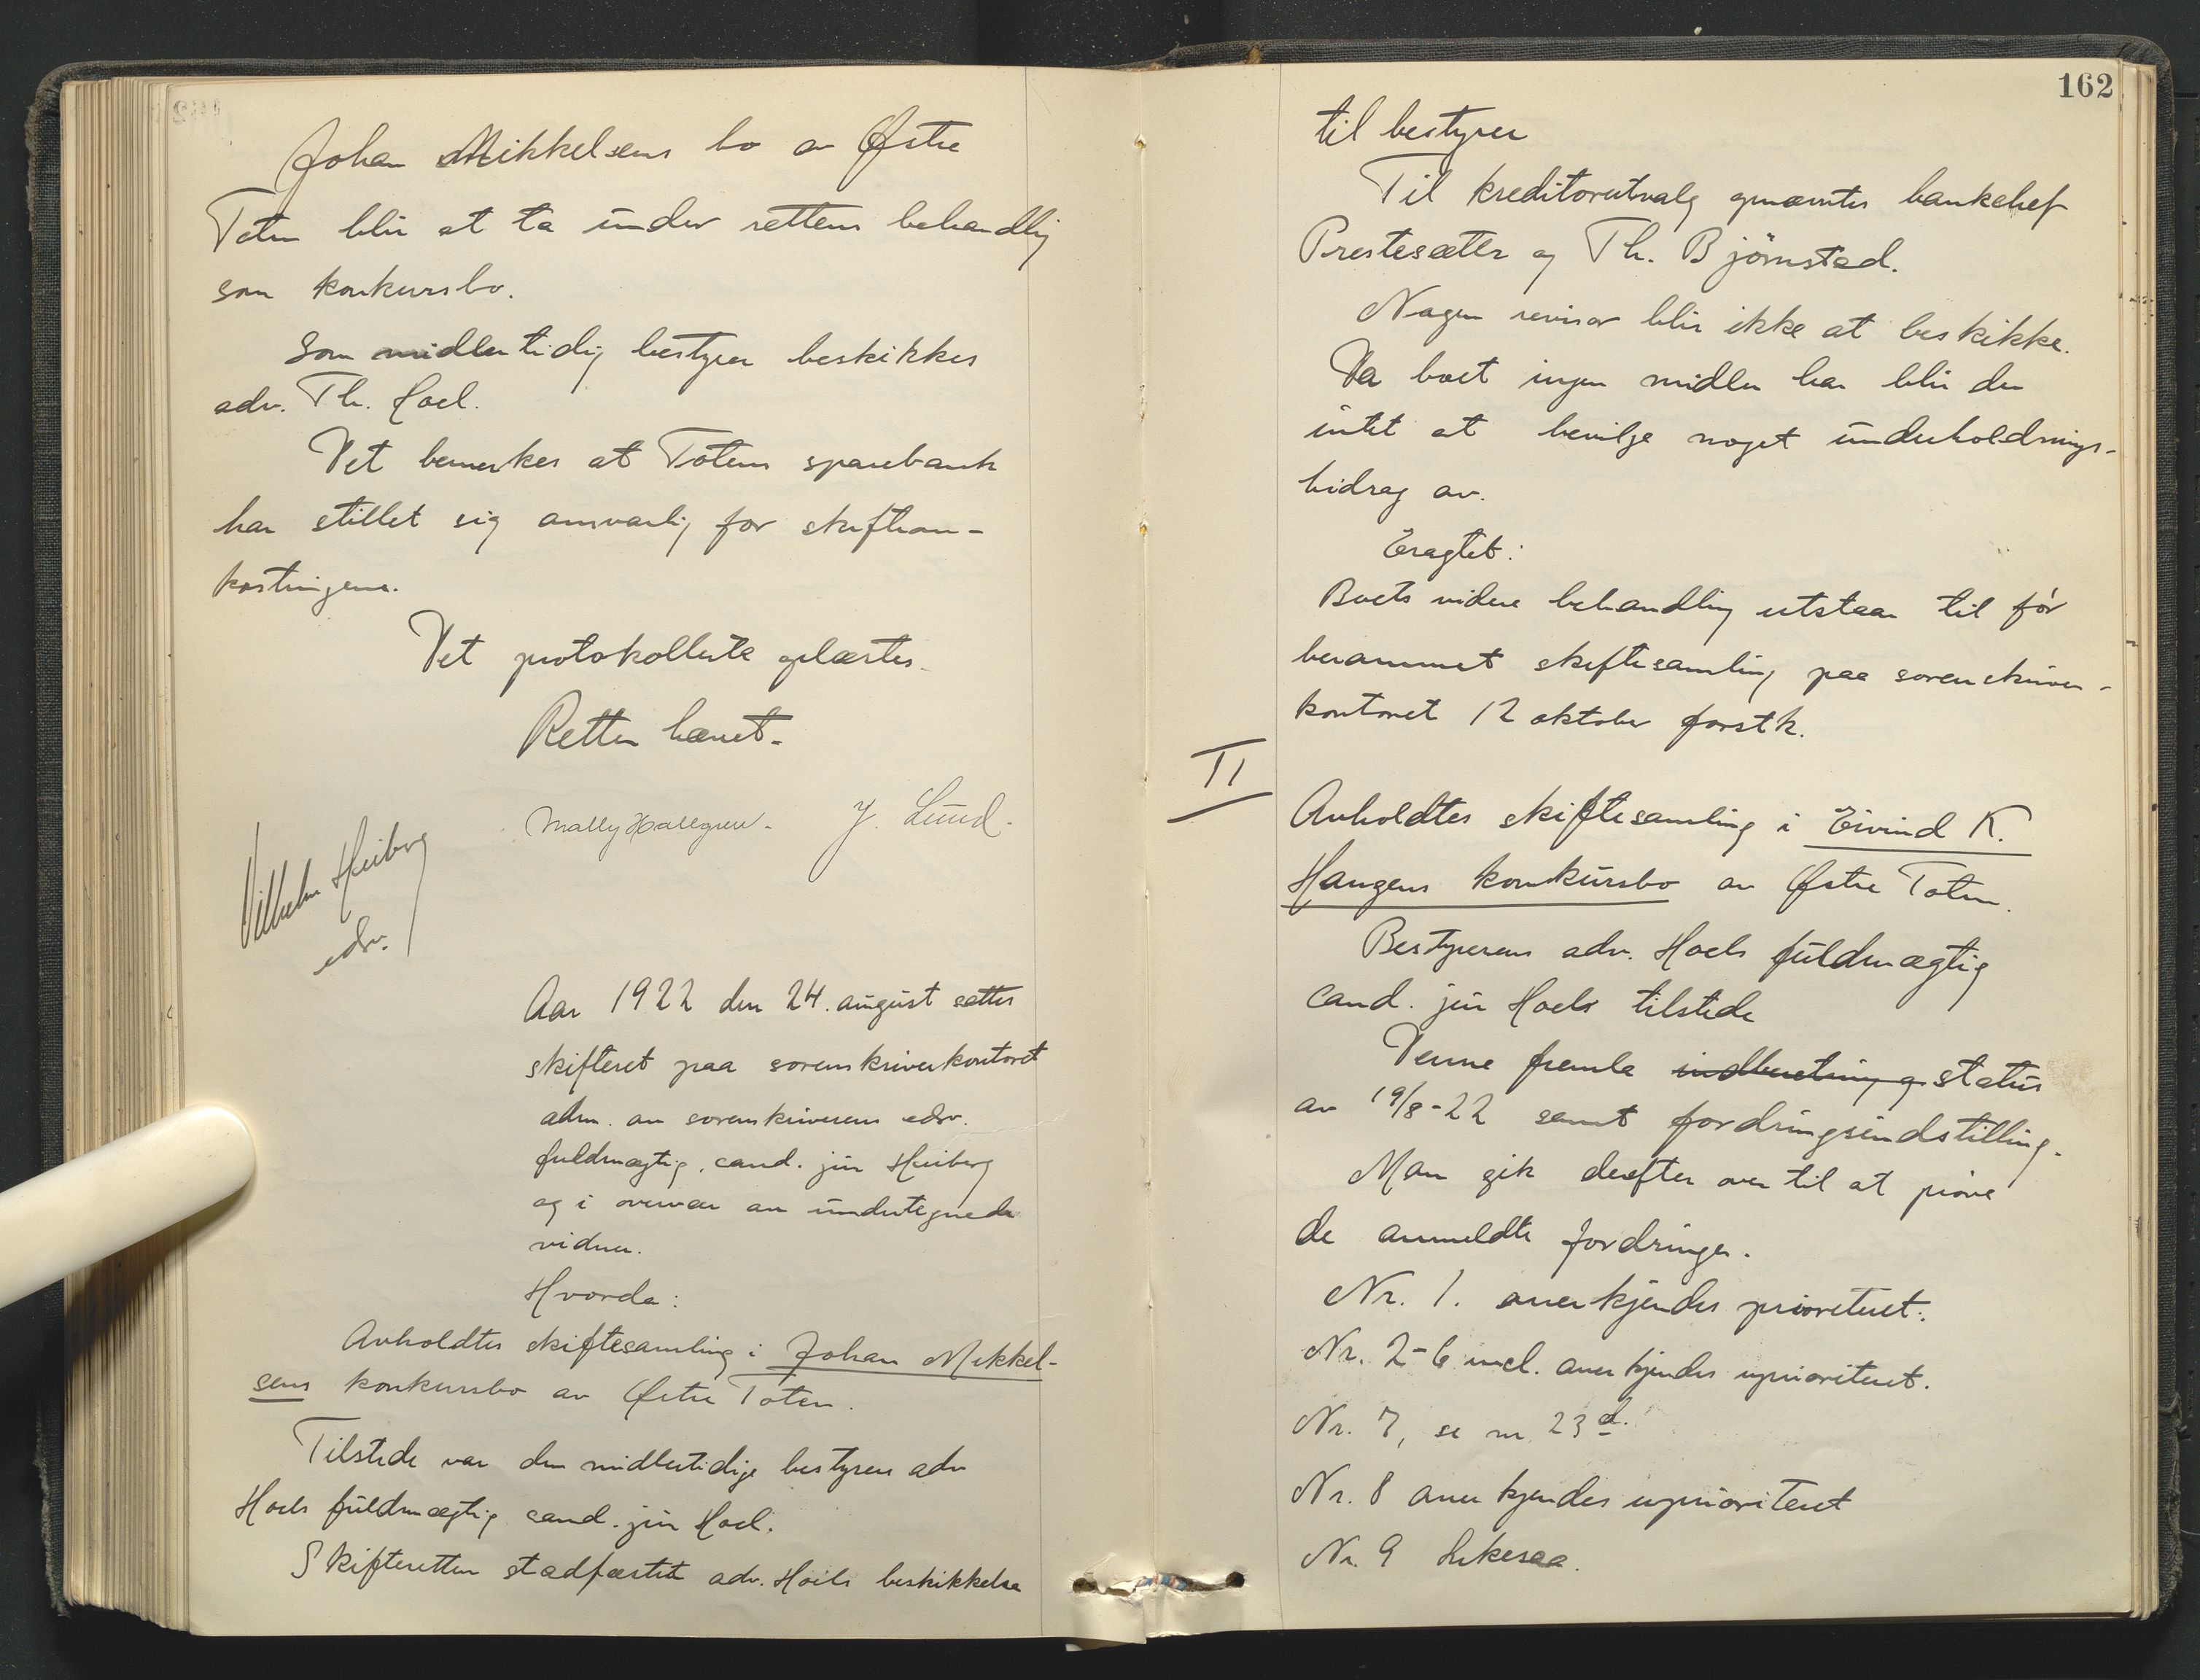 Johan Mikkelsens bo av Østre
Toten blir at ta under rettens behandling
som konkursbo.
Som midlertidig bestyrer beskikkes
adv. Th. Hoel.
Det bemerkes at Totens sparebank
har stillet sig ansvarlig for skifteom-
kostningene.
Det protokollerte oplæstes.
Retten hævet.
Mally Hallgren. J. Lund.
Vilhelm Heiberg
edsv.
Aar 1922 den 24. august sattes
skifteret paa sorenskriverkontoret
adm. av sorenskriverens edsv.
fuldmægtig, cand. jur Heiberg
og i overvær av undertegnede
vidner.
Hvorda:
Avholdtes skiftesamling i Johan Mikkel-
sens konkursbo av Østre Toten.
Tilstede var den midlertidige bestyrers adv
Hoels fuldmægtig cand. jur Hoel.
Skifteretten stadfæstet adv. Hoels beskikkelse
162
til bestyrer
Til kreditorutvalg opnævntes bankchef
Prestesæter og Th. Bjørnstad.
Nogen revisor blir ikke at beskikke.
Da boet ingen midler har blir der
intet at bevilge noget underholdnings-
bidrag av.
Eragtet:
Boets videre behandling utstaar til før
berammet skiftesamling paa sorenskriver-
kontoret 12 oktober førstk.
II
Avholdtes skiftesamling i Eivind K.
Haugens konkursbo av Østre Toten.
Bestyrerens adv. Hoels fuldmægtig
cand. jur Hoels tilstede
Denne fremla indberetning og status
av 19/8-22 samt fordringsindstilling.
Man gik derefter over til at prøve
de anmeldte fordringer.
Nr. 1. anerkjendes prioritert.
Nr. 2-6 incl. anerkjendes uprioritert.
Nr. 7, se nr 23 d.
Nr. 8 anerkjendes uprioritert
Nr. 9 likesaa.